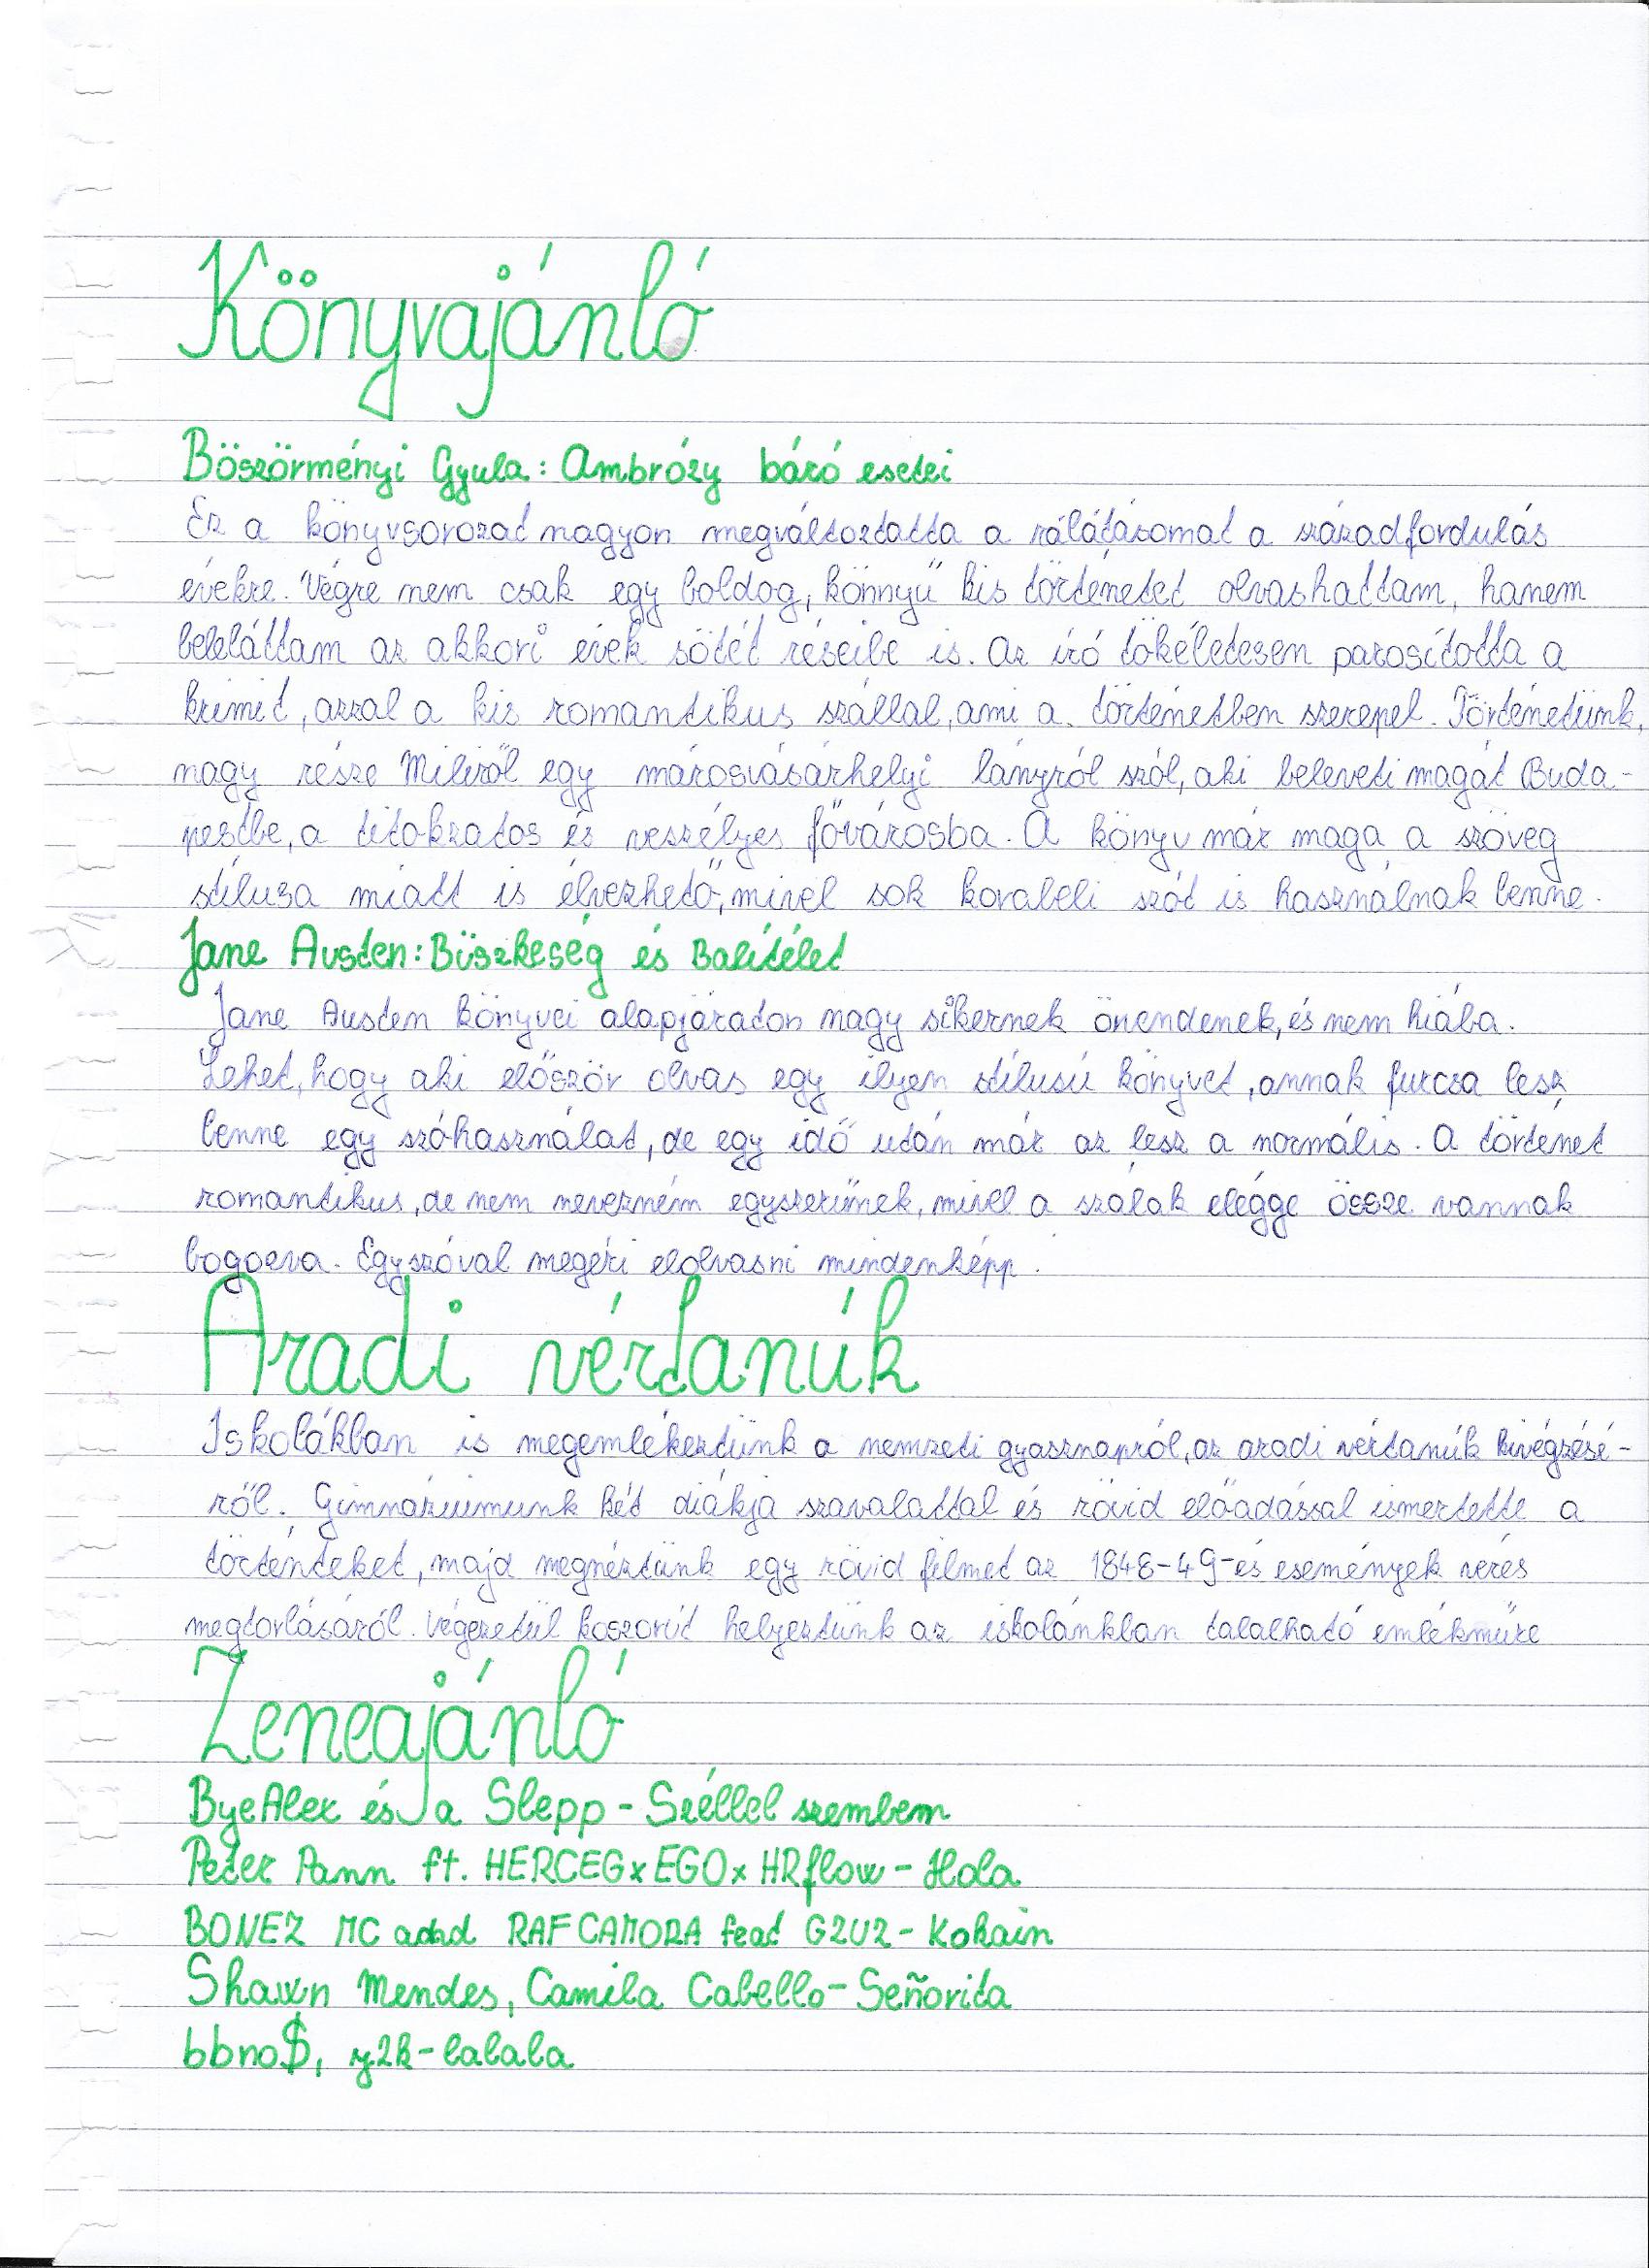 Könyvajánló
Böszörményi Gyula: Ambrózy báró esetei
Ez a könyvsorozat nagyon megváltoztatta a rálátásomat a századfordulás
évekre. Végre nem csak egy boldog, könnyű kis történetet olvashattam, hanem
beleláttam az akkori évek sötét részeibe is. Az író tökéletesen párosította a
krimit, azzal a kis romantikus szállal, ami a történetben szerepel. Történetünk,
nagy része Miliről egy márosvásárhelyi lányról szól, aki beleveti magát Buda-
pestbe, a titokzatos és veszélyes fővárosba. A könyv már maga a szöveg
stílusa miatt is élvezhető, mivel sok korabeli szót is használnak benne.
Jane Austen: Büszkeség és Balítélet
Jane Austen könyvei alapjáraton nagy sikernek örvendenek, és nem hiába.
Lehet, hogy aki először olvas egy ilyen stílusú könyvet, annak furcsa lesz
benne egy szóhasználat, de egy idő után már az lesz a normális. A történet
romantikus, de nem nevezném egyszerűnek, mivel a szálak eléggé össze vannak
bogozva. Egyszóval megéri elolvasni mindenképp.
Aradi vértanúk
Iskolákban is megemlékeztünk a nemzeti gyásznapról, az aradi vértanúk kivégzésé-
ről. Gimnáziumunk két diákja szavalattal és rövid előadással ismertette a
történteket, majd megnéztünk egy rövid filmet az 1848-49-es események véres
megtorlásáról. Végezetül koszorút helyeztünk az iskolánkban található emlékműre
Zeneajánló
ByeAlex és a Slepp - Széllel szemben
Peter Pann ft. HERCEG x EGO x HRflow - Hola
BONEZ MC RAF CAMORA feat GZUZ - Kokain
Shawn Mendes, Camila Cabello - Señorita
bbno$, y2k - lalala